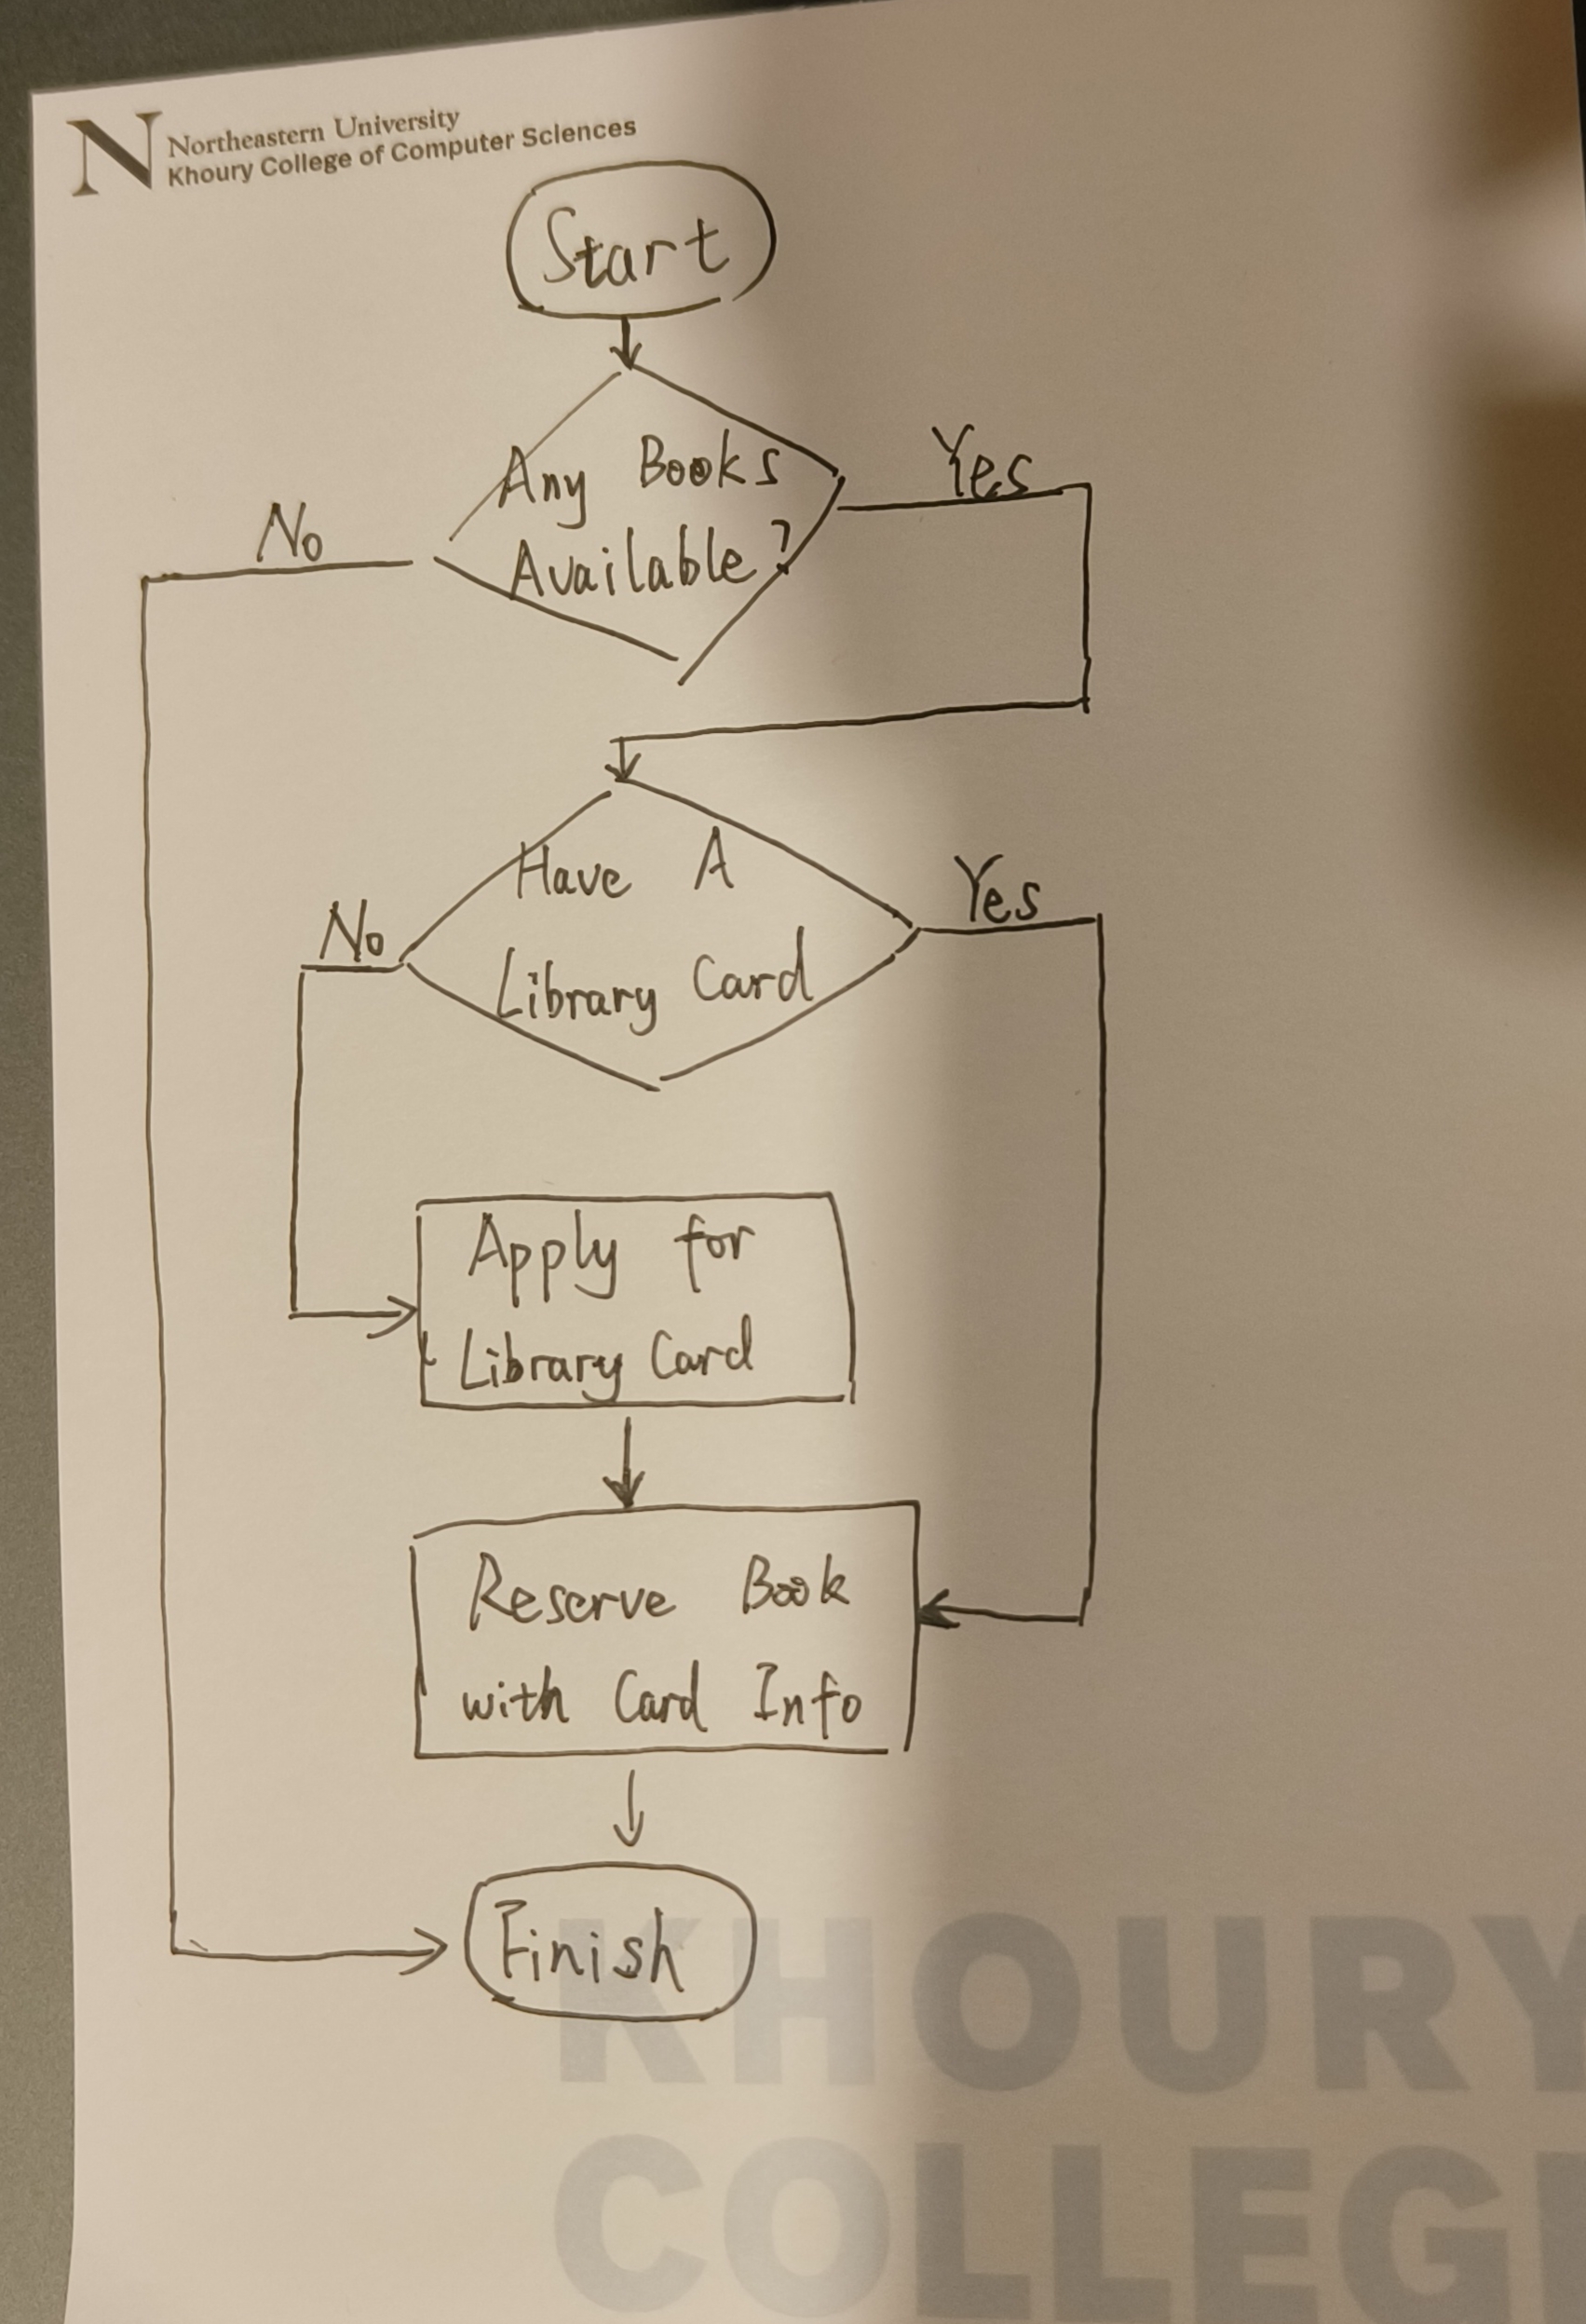 Northeastern University
Khoury College of Computer Sciences
Start
Any Books
Available?
Yes
No
Have A
Library Card
Yes
No
Apply for
Library Card
Reserve Book
with Card Info
Finish
KHOURY
COLLEGE